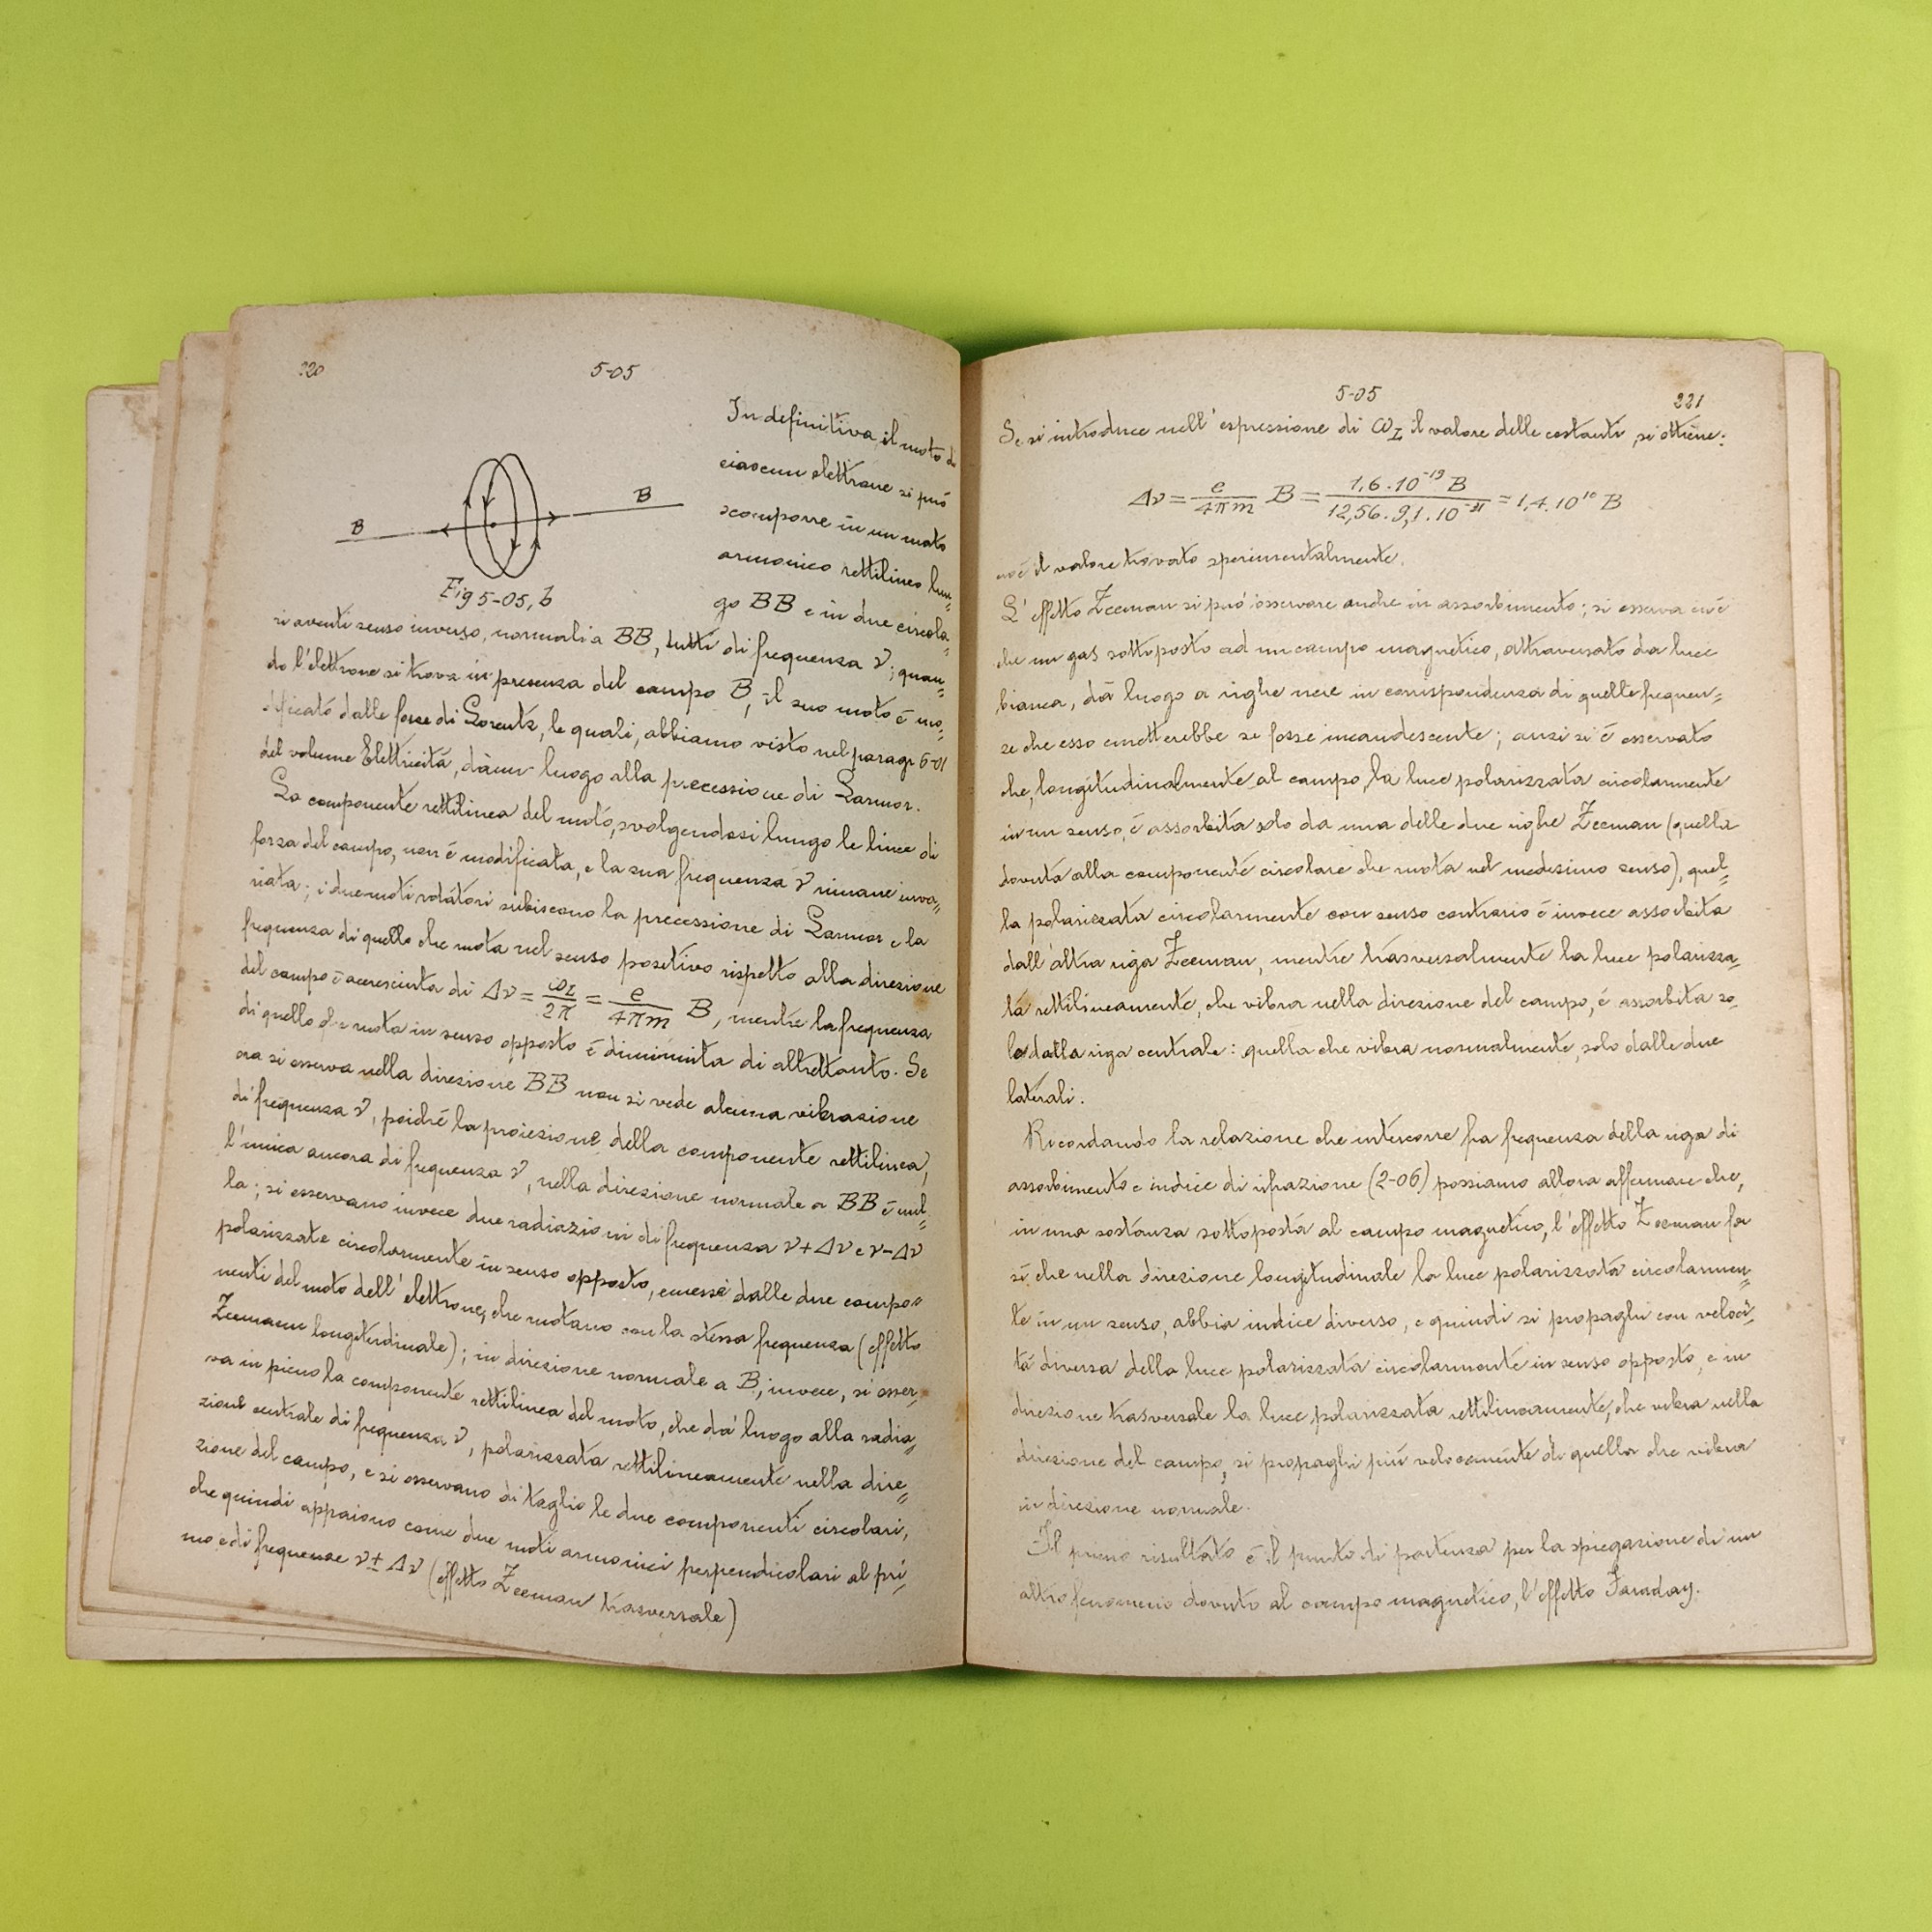 220
5-05
In definitiva, il moto di
ciascun elettrone si può
scomporre in un moto
armonico rettilineo lun=
go BB e in due circola=
B
B
Fig 5-05, b
ri aventi senso inverso, normali a BB, tutti di frequenza ν; quan=
do l'elettrone si trova in presenza del campo B, il suo moto è mo=
dificato dalle forze di Lorentz, le quali, abbiamo visto nel paragr 6-01
del volume Elettricità, danno luogo alla precessione di Larmor.
La componente rettilinea del moto, svolgendosi lungo le linee di
forza del campo, non è modificata, e la sua frequenza ν rimane inva=
riata; i due moti rotatori subiscono la precessione di Larmor e la
frequenza di quello che ruota nel senso positivo rispetto alla direzione
del campo è accresciuta di Δν = ω_L/2π = e/4πm B, mentre la frequenza
di quello che ruota in senso opposto è diminuita di altrettanto. Se
ora si osserva nella direzione BB non si vede alcuna vibrazione
di frequenza ν, poiché la proiezione della componente rettilinea,
l'unica ancora di frequenza ν, nella direzione normale a BB è nul=
la; si osservano invece due radiazioni di frequenza ν+Δν e ν-Δν
polarizzate circolarmente in senso opposto, emesse dalle due compo=
nenti del moto dell'elettrone, che ruotano con la stessa frequenza (effetto
Zeemann longitudinale); in direzione normale a B, invece, si osser=
va in pieno la componente rettilinea del moto, che dà luogo alla radia=
zione centrale di frequenza ν, polarizzata rettilineamente nella dire=
zione del campo, e si osservano di taglio le due componenti circolari,
che quindi appaiono come due moti armonici perpendicolari al pri=
mo e di frequenze ν ± Δν (effetto Zeeman trasversale)
5-05
221
Se si introduce nell'espressione di ω_L il valore delle costanti, si ottiene:
Δν = e/4πm B = 1,6 . 10^-19 B / 12,56 . 9,1 . 10^-31 = 1,4 . 10^10 B
cioè il valore trovato sperimentalmente.
L'effetto Zeeman si può osservare anche in assorbimento; si osserva cioè
che un gas sottoposto ad un campo magnetico, attraversato da luce
bianca, dà luogo a righe nere in corrispondenza di quelle frequen=
ze che esso emetterebbe se fosse incandescente; anzi si è osservato
che, longitudinalmente al campo, la luce polarizzata circolarmente
in un senso, è assorbita solo da una delle due righe Zeeman (quella
dovuta alla componente circolare che ruota nel medesimo senso), quel=
la polarizzata circolarmente con senso contrario è invece assorbita
dall'altra riga Zeeman, mentre trasversalmente la luce polarizza=
ta rettilineamente, che vibra nella direzione del campo, è assorbita so=
lo dalla riga centrale: quella che vibra normalmente, solo dalle due
laterali.
Ricordando la relazione che intercorre fra frequenza della riga di
assorbimento e indice di rifrazione (2-06) possiamo allora affermare che,
in una sostanza sottoposta al campo magnetico, l'effetto Zeeman fa
sì che nella direzione longitudinale la luce polarizzata circolarmen=
te in un senso, abbia indice diverso, e quindi si propaghi con veloci=
tà diversa della luce polarizzata circolarmente in senso opposto, e in
direzione trasversale la luce polarizzata rettilineamente, che vibra nella
direzione del campo, si propaghi più velocemente di quella che vibra
in direzione normale.
Il primo risultato è il punto di partenza per la spiegazione di un
altro fenomeno dovuto al campo magnetico, l'effetto Faraday.